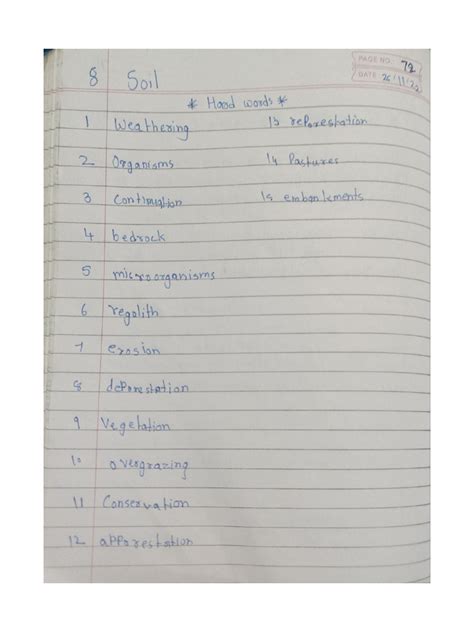 PAGE NO. 72
DATE 26/11/22
8 Soil
* Hard words *
1 Weathering
2 Organisms
3 Continuation
4 bedrock
5 microorganisms
6 regolith
7 erosion
8 deforestation
9 Vegetation
10 overgrazing
11 Conservation
12 afforestation
13 reforestation
14 Pastures
15 embankements